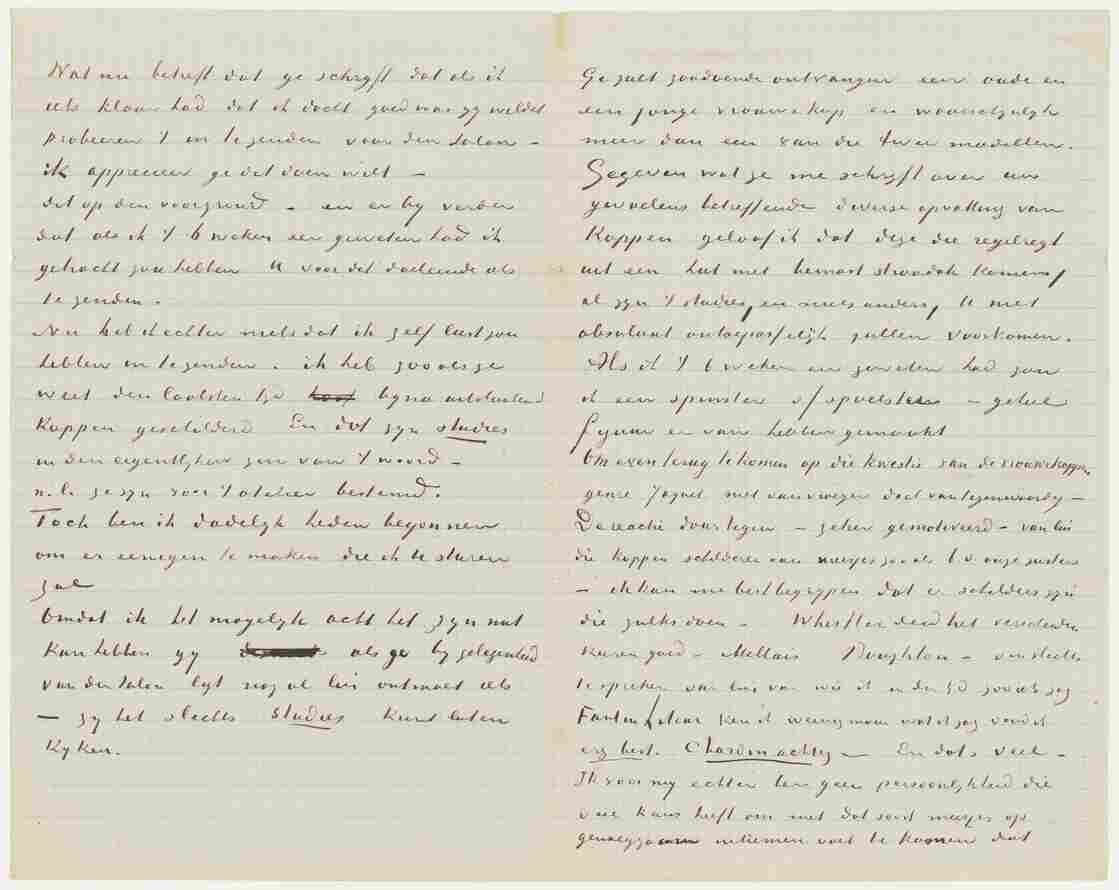 Wat nu betreft dat ge schryft dat als ik
iets klaar had dat ik dacht goed was gy wildet
probeeren 't in te zenden voor den Salon –
ik apprecieer ge dat doen wilt –
dit op den voorgrond – en er by verder
dat als ik 't 6 weken eer geweten had ik
getracht zou hebben U voor dit doeleinde iets
te zenden.
Nu heb ik echter niets dat ik zelf lust zou
hebben in te zenden. ik heb zooals ge
weet den laatsten tyd byna uitsluitend
koppen geschilderd En dat zyn studies
in den eigentlyken zin van 't woord –
n.l. ze zyn voor 't atelier bestemd.
Toch ben ik dadelyk heden begonnen
om er eenigen te maken die ik U sturen
zal
Omdat ik het mogelyk acht het zyn nut
kan hebben gy als ge by gelegenheid
van den Salon ligt nog al lui ontmoet iets
– zy het slechts studies kunt laten
kyken.
Ge zult zoodoende ontvangen een oude en
een jonge vrouwekop en waarschynlyk
meer dan een van die twee modellen.
Gegeven wat ge me schryft over uw
gevoelens betreffende diverse opvatting van
koppen geloof ik dat deze die regelregt
uit een hut met bemost stroodak komen,
al zyn 't studies en niets anders, U niet
absoluut ontoepasselyk zullen voorkomen.
Als ik 't 6 weken eer geweten had zou
ik een spinster of spoelster – geheel
figuur er van hebben gemaakt
Om even terug te komen op die kwestie van de vrouwekoppen
genre Jaquet niet van vroeger doch van tegenwoordig –
De reactie daartegen – zeker gemotiveerd – van lui
die koppen schilderen van meisjes zooals b.v. onze zusters
– ik kan me best begrypen dat er schilders zyn
die zulks doen – Whistler deed het verscheiden
keeren goed – Millais Boughton – om slechts
te spreken van lui van wie ik in der tyd zooiets zag
Fantin Latour ken ik weinig maar wat ik zag vond ik
erg best. Chardin achtig – En dat's veel –
Ik voor my echter ben geen persoonlykheid die
veel kans heeft om met dat soort meisjes op
genoegzaam intiemen voet te komen dat